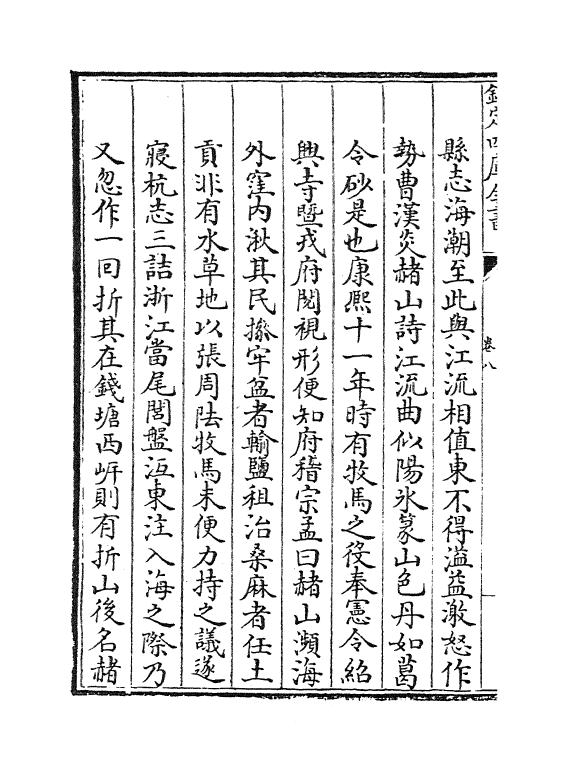 欽定四庫全書
卷八
縣志海潮至此與江流相值東不得溢益激怒作
勢曹漢炎赭山詩江流曲似陽氷篆山色丹如葛
令砂是也康熙十一年時有牧馬之役奉憲令紹
興寺暨戎府閱視形便知府稽宗孟曰赭山瀕海
外窪内湫其民操牢盆者輸鹽租治桑麻者任土
貢非有水草地以張周阹牧馬未便力持之議遂
寢杭志三詰浙江當尾閭盤沍東注入海之際乃
又忽作一回折其在錢塘西岍則有折山後名赭